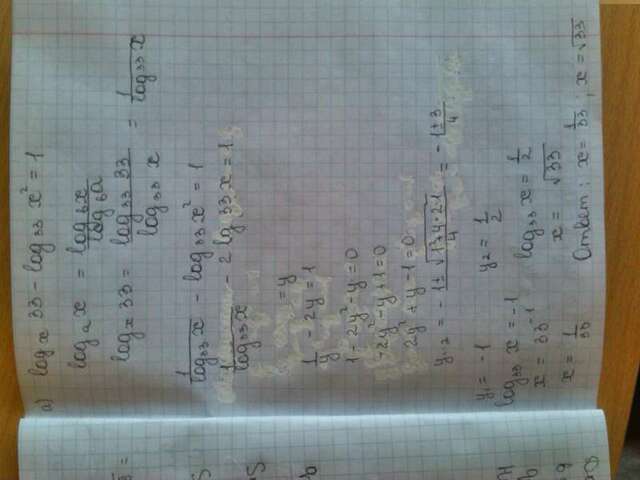 а) logₓ 33 - log₃₃ x² = 1
logₐ x = log_b x / log_b a
logₓ 33 = log₃₃ 33 / log₃₃ x = 1 / log₃₃ x
1 / log₃₃ x - log₃₃ x² = 1
1 / log₃₃ x - 2 log 33 x = 1
= y
1/y - 2y = 1
1 - 2y² - y = 0
-2y² - y + 1 = 0
2y² + y - 1 = 0
y₁,₂ = - 1 ± √(1+4·2·1) / 4 = - 1 ± 3 / 4
y₁ = -1 y₂ = 1/2
log₃₃ x = -1 log₃₃ x = 1/2
x = 33⁻¹ x = √33
x = 1/33
Ответ: x = 1/33 ; x = √33